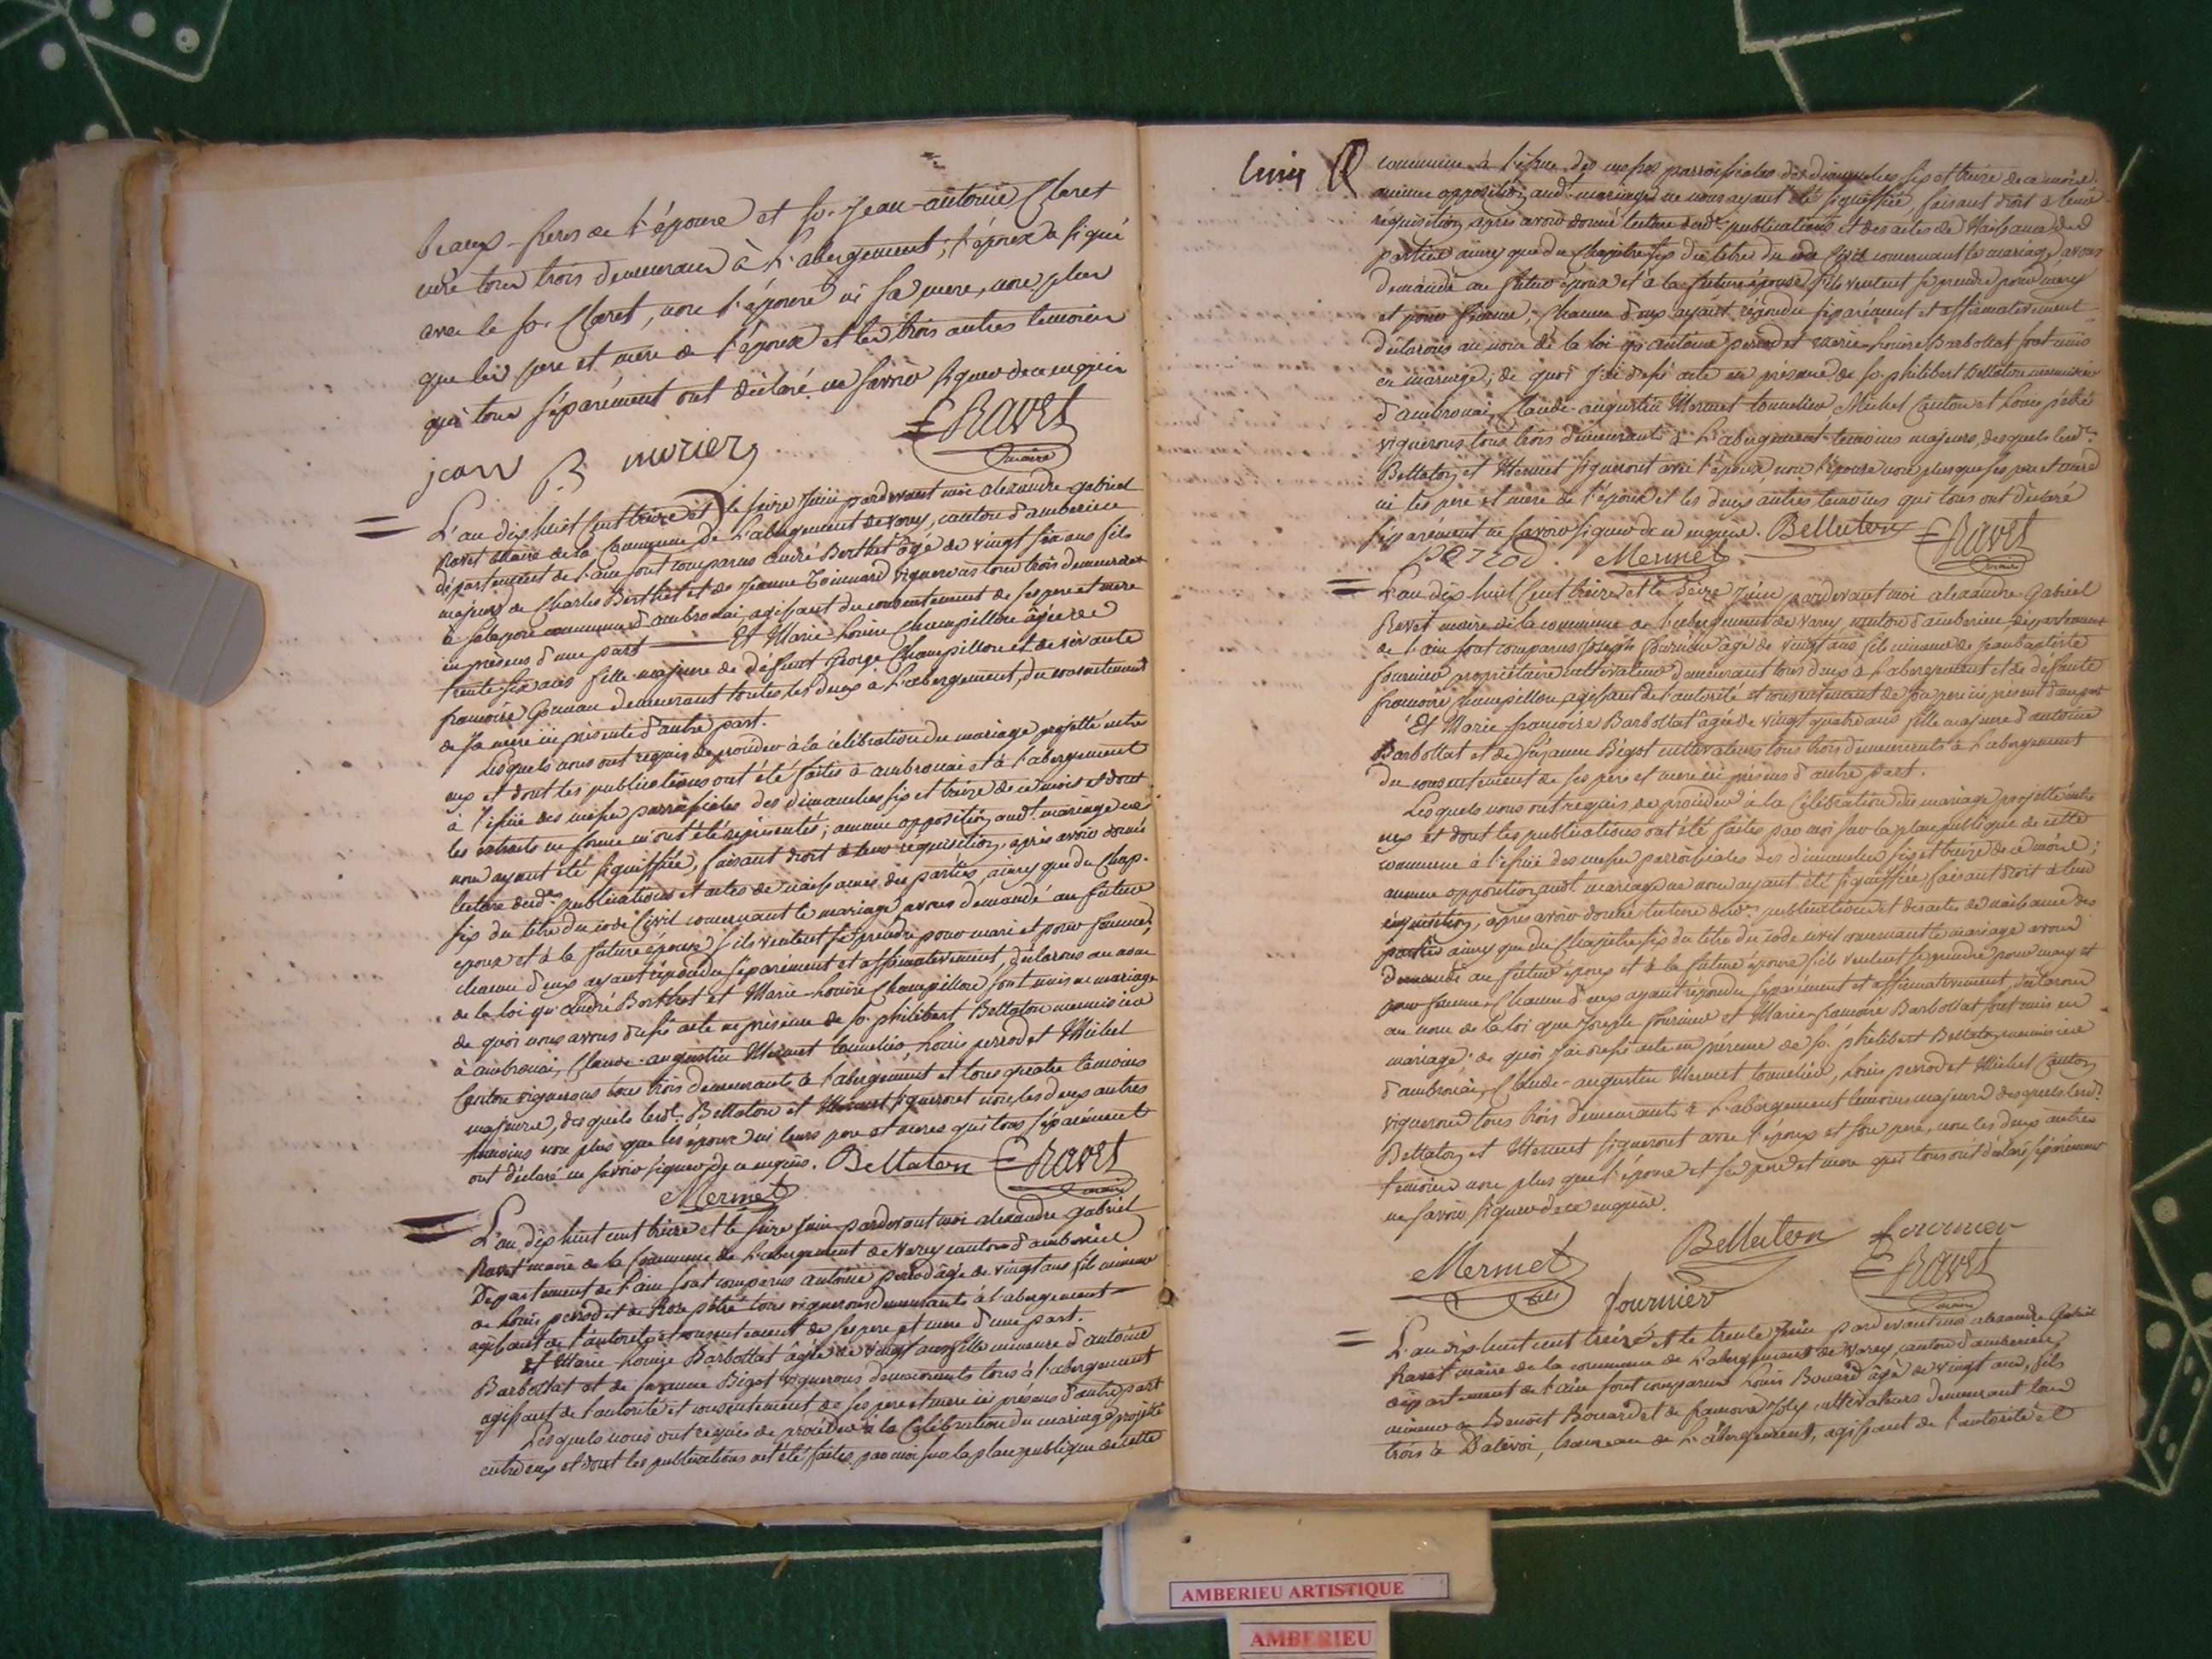 beaux-freres de l'épouse et sr. Jean-antoine Claret
curé tous trois demeurans à L'abergement; l'époux a signé
avec le sr. Claret, non l'épouse ni sa mere, non plus
que les pere et mere de l'époux et les trois autres temoins
qui tous séparément ont déclaré ne savoir signer de ce enquis
jean B murier
ERavet
maire
L'an dix huit cent treize et le seize Juin pardevant moi alexandre-gabriel
Ravet Maire de la Commune de L'abergement de varey, canton d'amberieu
département de l'ain sont comparus andré Berthet âgé de vingt six ans fils
majeur de Charles Berthet et de Jeanne vignerons tous trois demeurans
à commune d'ambronai, agissant du consentement de ses pere et mere
ici présens d'une part Et Marie-Louise Champillon âgée de
trente six ans fille majeure de défunt George Champillon et de vivante
françoise demeurant toutes les deux à L'abergement, du consentement
de sa mere ici présente d'autre part.
Lesquels nous ont requis de proceder à la célébration du mariage projetté entre
eux et dont les publications ont été faites à ambronai et à l'abergement
à l'issüe des messes parroissiales des dimanches six et treize de ce mois et dont
les extraits en forme m'ont été représentés; aucune opposition audt. mariage ne
nous ayant été signiffiée, faisant droit à leur requisition, après avoir donné
lecture desdes. publications et actes de naissances des parties, ainsy que du Chap.
six du titre du code Civil concernant le mariage, avons demandé au futur
epoux et à la future épouse s'ils veulent se prendre pour mari et pour femme;
chacun d'eux ayant répondu séparément et affirmativement, déclarons au nom
de la loi qu'andré Berthet et Marie-Louise Champillon sont unis en mariage
de quoi nous avons dressé acte en présence de sr. philibert Bellaton menuisier
à ambronai, Claude-augustin Mermet tonnelier Louis perrod et Michel
Canton vignerons tous trois demeurants à l'abergement et tous quatre temoins
majeurs, desquels lesdt. Bellaton et Mermet signeront non les deux autres
temoins non plus que les époux ni leurs pere et meres qui tous séparément
ont déclaré ne savoir signer de ce enquis. Bellaton ERavet
Mermet maire
L'an dix huit cent treize et le seize Juin pardevant moi alexandre gabriel
Ravet maire de la Commune de L'abergement de Varey canton d'amberieu
Département de l'ain sont comparus antoine perrod âgé de vingt ans fils mineur
de Louis perrod et de Rose pétré tous vignerons demeurants à l'abergement
agissant de l'autorité et consentement de ses pere et mere d'une part.
Et Marie-Louise Barbollat âgée de vingt ans fille mineure d'antoine
Barbollat et de suzanne Bigot vignerons demeurants tous à l'abergement
agissant de l'autorité et consentement de ses pere et mere ici présens d'autre part
Lesquels nous ont requis de procéder à la Célébration du mariage projetté
entre eux et dont les publications ont été faites par moi sur la place publique de cette
commune à l'issue des messes parroissiales des dimanches six et treize de ce mois.
aucune opposition audt. mariage ne nous ayant été signiffiée, faisant droit à leur
requisition, après avoir donné lecture desdes. publications et des actes de Naissance des
parties ainsy que du Chapitre six du titre du code Civil concernant le mariage, avons
demandé au futur époux et à la future épouse s'ils veulent se prendre pour mary
et pour femme; Chacun d'eux ayant répondu séparément et affirmativement
déclarons au nom de la loi qu'antoine perrod et marie-Louise Barbollat sont unis
en mariage; de quoi j'ai dressé acte en présence de sr. philibert Bellaton menuisier
d'ambronai, Claude-augustin Mermet tonnelier, Michel Canton et Louis pétré
vignerons tous trois demeurants à L'abergement temoins majeurs, desquels lesdt.
Bellaton et Mermet signeront avec l'époux non l'épouse non plus que ses pere et mere
ni les pere et mere de l'époux et les deux autres temoins qui tous ont déclaré
séparément ne savoir signer de ce enquis. Bellaton ERavet
perrod. Mermet maire
L'an dix huit cent treize et le Seize Juin pardevant moi alexandre Gabriel
Ravet maire de la commune de L'abergement de Varey canton d'amberieu, département
de l'ain sont comparus Joseph fournier âgé de vingt ans fils mineur de Jean baptiste
fournier propriétaire cultivateur demeurant tous deux à L'abergement et de défunte
francoise Champillon, agissant de l'autorité et consentement de son pere ici présent d'une part
Et Marie-francoise Barbollat âgée de vingt quatre ans fille majeure d'antoine
Barbollat et de suzanne Bigot cultivateurs tous trois demeurants à L'abergement
du consentement de ses pere et mere ici présens d'autre part.
Lesquels nous ont requis de procéder à la Célébration du mariage projetté entre
eux et dont les publications ont été faites par moi sur la place publique de cette
commune à l'issüe des messes parroissiales des dimanches six et treize de ce mois;
aucune opposition audt. mariage ne nous ayant été signiffiée faisant droit à leur
requisition, après avoir donné lecture desdes. publications et des actes de naissance des
parties ainsy que du Chapitre six du titre du code civil concernant le mariage avons
demandé au futur époux et à la future épouse s'ils veulent se prendre pour mary et
pour femme; Chacun d'eux ayant répondu séparément et affirmativement, déclarons
au nom de la loi que Joseph fournier et Marie-francoise Barbollat sont unis en
mariage; de quoi j'ai dressé acte en présence de sr. philibert Bellaton menuisier
d'ambronai, Claude-augustin Mermet tonnelier, Louis perrod et Michel Canton
vignerons tous trois demeurants à L'abergement temoins majeurs desquels lesdt.
Bellaton et Mermet signeront avec l'époux et son pere, non les deux autres
temoins non plus que l'épouse et ses pere et mere qui tous ont déclaré séparément
ne savoir signer de ce enquis.
Bellaton fournier
Mermet fournier ERavet
maire
L'an dix-huit cent treize et le trente Juin pardevant moi alexandre Gabriel
Ravet maire de la commune de L'abergement de Varey, canton d'amberieu,
département de l'ain sont comparus Louis Bouard âgé de vingt ans, fils
mineur de Benoit Bouard et de francoise Joly cultivateurs demeurant tous
trois à Dalivoi, hameau de L'abergement, agissant de l'autorité et
AMBERIEU ARTISTIQUE
AMBERIEU